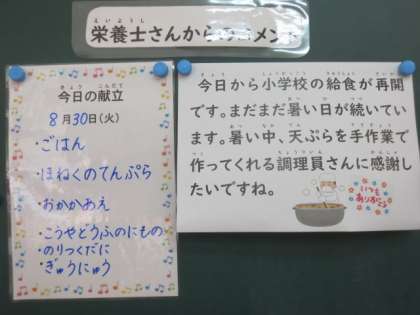 栄養士さんからのコメント
今日の献立
8月30日(火)
・ごはん
・ほねくのてんぷら
・おかかあえ
・こうやどうふのにもの
・のりつくだに
・ぎゅうにゅう
今日から小学校の給食が再開
です。まだまだ暑い日が続いてい
ます。暑い中、天ぷらを手作業で
作ってくれる調理員さんに感謝し
たいですね。
いつも
ありがとう